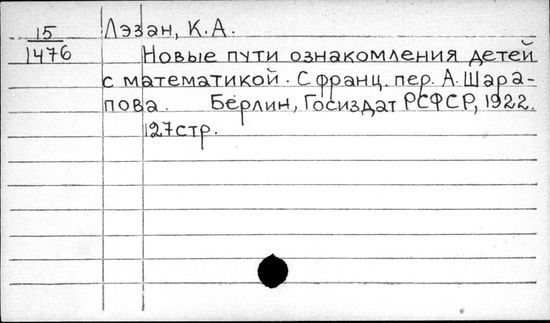 15 Лэзан, К.А.
1476 Новые пути ознакомления детей
с математикой. С франц. пер. А. Шара-
пова. Берлин, Госиздат РСФСР, 1922.
127стр.